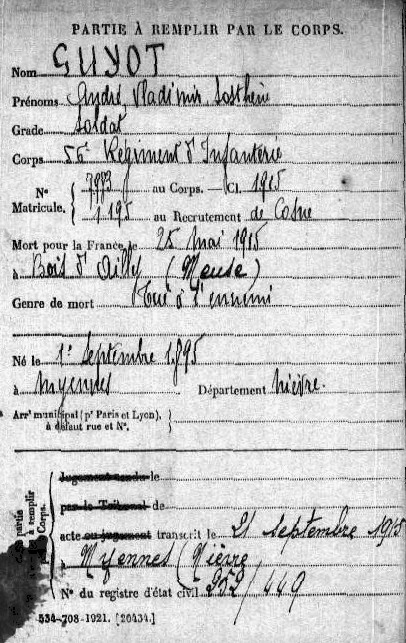 PARTIE À REMPLIR PAR LE CORPS.
Nom GUYOT
Prénoms André, Vladimir, Sosthène
Grade Soldat
Corps 56e Régiment d'Infanterie
N° Matricule. { 7983 au Corps. — Cl. 1915
1195 au Recrutement de Cosne
Mort pour la France le 25 mai 1915
à Bois d'Ailly (Meuse)
Genre de mort Tué à l'ennemi
Né le 1er Septembre 1895
à Myennes Département Nièvre.
Arrt municipal (pr Paris et Lyon), à défaut rue et N°. }
Jugement rendu le
par le Tribunal de
acte ou jugement transcrit le 21 septembre 1915
à Myennes (Nièvre
N° du registre d'état civil 252/449
partie à remplir Corps.
534-708-1921. [26434.]